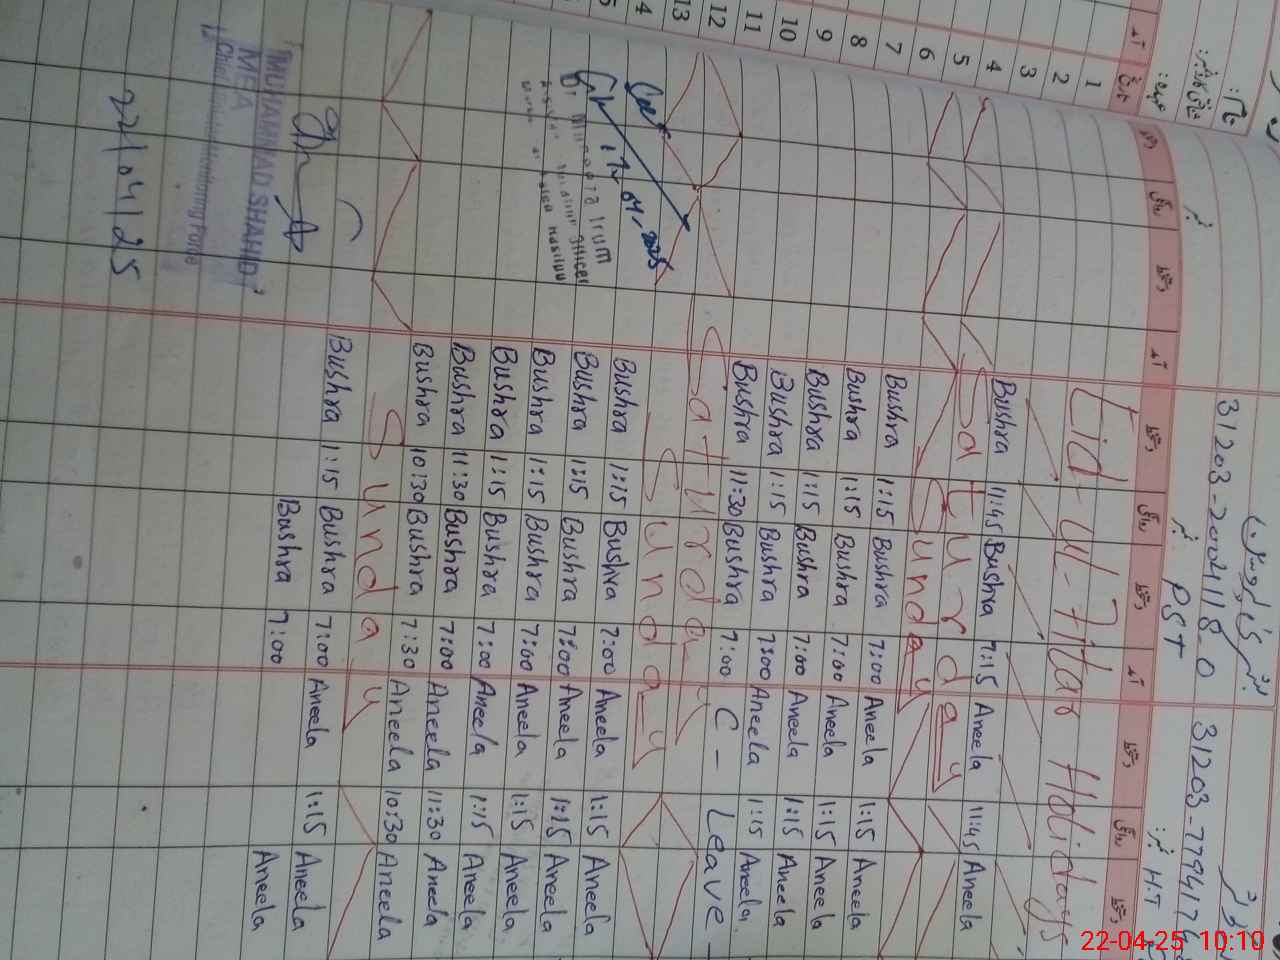 31203-2024118-0
31203-779417
PST
H.T
1
2
3
4
5
6
7
8
9
10
11
12
13
Eid-Ul-Fitar Holidays
Bushra 11:45 Bushra 7:15 Aneela 11:45 Aneela
Saturday
Sunday
Bushra 1:15 Bushra 7:00 Aneela 1:15 Aneela
Bushra 1:15 Bushra 7:00 Aneela 1:15 Aneela
Bushra 1:15 Bushra 7:00 Aneela 1:15 Aneela
Bushra 1:15 Bushra 7:00 Aneela 1:15 Aneela
Bushra 11:30 Bushra 7:00 C - Leave -
Saturday
Sunday
Bushra 1:15 Bushra 7:00 Aneela 1:15 Aneela
Bushra 1:15 Bushra 7:00 Aneela 1:15 Aneela
Bushra 1:15 Bushra 7:00 Aneela 1:15 Aneela
Bushra 1:15 Bushra 7:00 Aneela 1:15 Aneela
Bushra 11:30 Bushra 7:00 Aneela 11:30 Aneela
Bushra 10:30 Bushra 7:30 Aneela 10:30 Aneela
Sunday
Bushra 1:15 Bushra 7:00 Aneela 1:15 Aneela
Bushra 7:00 Aneela
Irum
Officer
MUHAMMAD SHAHID
MEA
Monitoring Force
22/04/25
22-04-25 10:10